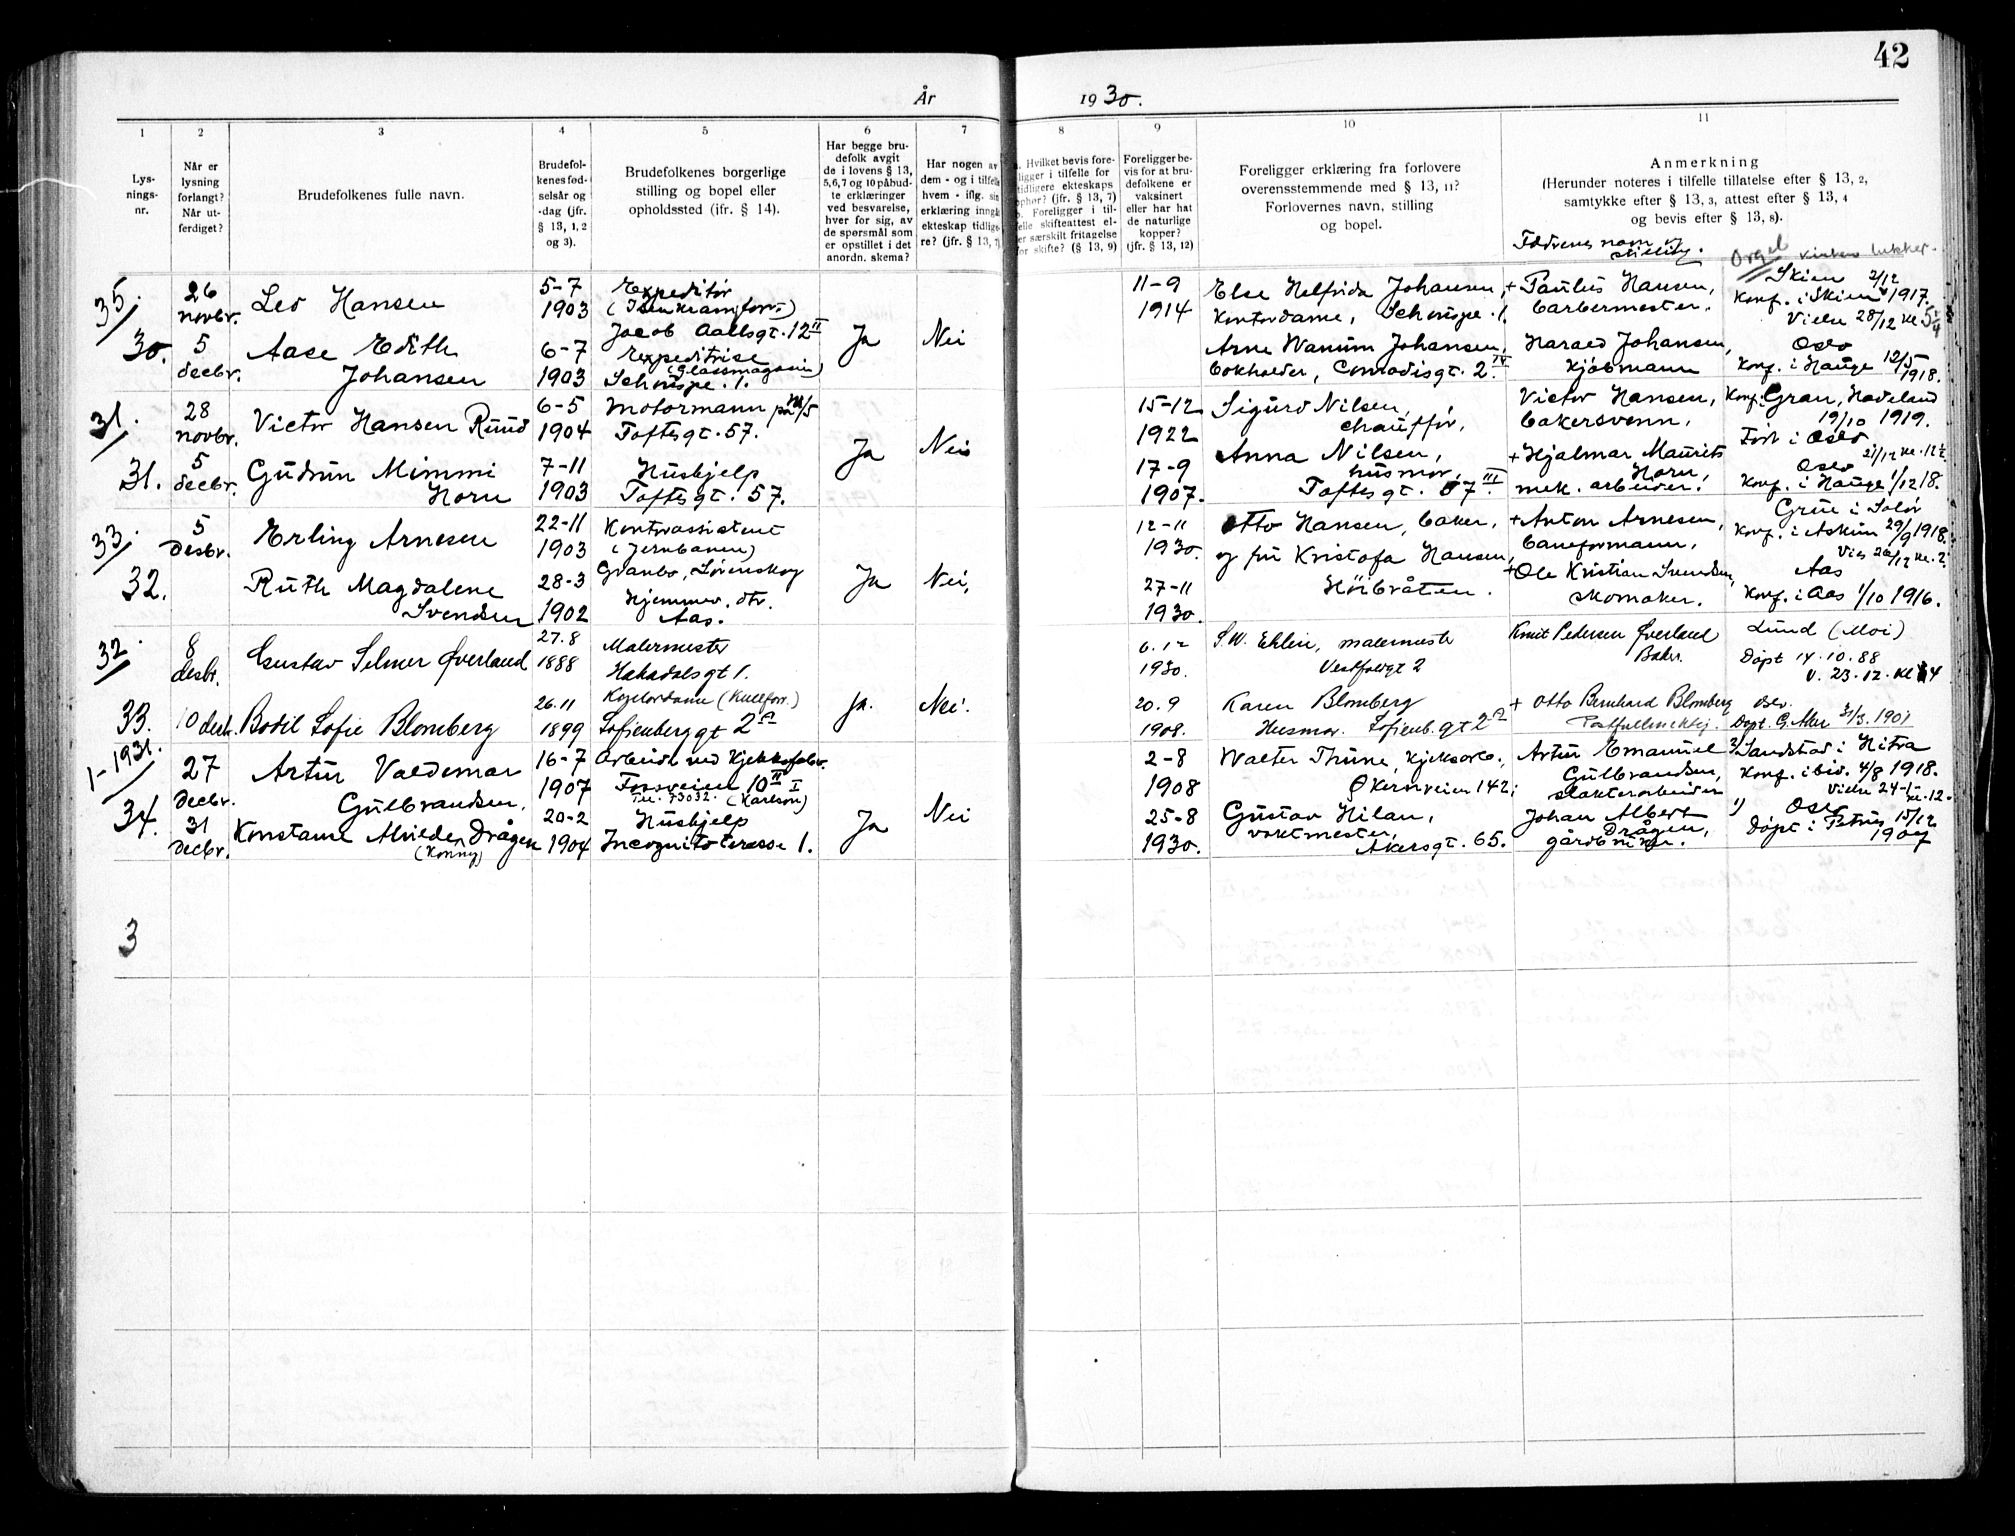 42
År 1930.
1
2
3
4
5
6
7
8
9
10
11
Lys-
nings-
nr.
Når er
lysning
forlangt?
Når ut-
ferdiget?
Brudefolkenes fulle navn.
Brudefol-
kenes fød-
selsår og
-dag (jfr.
§ 13, 1, 2
og 3).
Brudefolkenes borgerlige
stilling og bopel eller
opholdssted (ifr. § 14).
Har begge bru-
defolk avgit
de i lovens § 13,
5, 6, 7 og 10 påbud-
te erklæringer
ved besvarelse,
hver for sig, av
de spørsmål som
er opstillet i det
anordn. skema?
Har nogen av
dem - og i tilfelle
hvem - iflg. sin
erklæring inngått
ekteskap tidlige-
re? (jfr. § 13, 7)
Hvilket bevis fore-
ligger i tilfelle for
tidligere ekteskaps
ophør? (jfr. § 13, 7)
b. Foreligger i til-
felle skifteattest el-
ler særskilt fritagelse
for skifte? (§ 13, 9)
Foreligger be-
vis for at bru-
defolkene er
vaksinert
eller har hat
de naturlige
kopper?
(jfr. § 13, 12)
Foreligger erklæring fra forlovere
overensstemmende med § 13, 11?
Forlovernes navn, stilling
og bopel.
Anmerkning
(Herunder noteres i tilfelle tillatelse efter § 13, 2,
samtykke efter § 13, 3, attest efter § 13, 4
og bevis efter § 13, 8).
Fædrenes navn og
stilling.
Orgel
35.
30.
26
novbr.
5
decbr.
Leo Hansen
Aase Edith
Johansen
5-7
1903
6-7
1903
Expeditør
(Isenkramforr.)
Jacob Aallsgt. 12 II
Expeditrise
(Glassmagasin)
Schouspl. 1.
Ja
Nei
11-9
1914
Else Helfrida Johansen,
Kontordame, Schouspl. 1.
Arne Wanum Johansen,
bokholder, Conradisgt. 2. IV
+ Paulus Hansen,
barbermester.
Harald Johansen,
kjøbmann
Skien 2/12
Konf. i Skien 1917.
Vielse 28/12 kl. 5 1/4
Oslo
Konf. i Hauge 12/5
1918.
31.
31.
28
novbr.
5
decbr.
Victor Hansen Ruud
Gudrun Mimmi
Horn
6-5
1904
7-11
1903
Motormann på
Toftesgt. 57.
Hushjelp
Toftesgt. 57.
Ja
Nei
15-12
1922
17-9
1907.
Sigurd Nilsen,
chauffør,
Anna Nilsen,
husmor,
Toftesgt. 57 III.
Victor Hansen,
bakersvenn.
+ Hjalmar Maurits
Horn,
mek. arbeider.
Konf. Gran, Hadeland
19/10 1919.
Født i Oslo
21/12 kl. 12 1/2.
Oslo
Konf. i Hauge 1/12 18.
33.
32.
5
desbr.
Erling Arnesen
Ruth Magdalene
Svendsen
22-11
1903
28-3
1902
Kontorassistent
(i Jernbanen)
Granbo, Lørenskog
Hjemmev. dtr.
Aas.
Ja
Nei,
12-11
1930.
27-11
1930.
Otto Hansen, baker,
og fru Kristofa Hansen,
Höibråten.
+ Anton Arnesen,
baneformann.
+ Ole Kristian Svendsen,
skomaker.
Grue i Solør
Konf. i Askim 29/9 1918.
Vies 26/12 kl. 2.
Aas
Konf. i Aas 1/10 1916.
32.
33.
8
desbr.
10 desbr.
Gustav Selmer Øverland
Bodil Sofie Blomberg
27.8
1888
26.11
1899
Malermester
Hakadalsgt 1.
Kontordame (Kullforr.)
Sofienberggt 2 A
Ja.
Nei.
6.12
1930.
20.9
1908.
S.W. Ehlin, malermester
Vestfoldgt 2
Karen Blomberg
Husmor. Sofienb.gt 2 A
Knut Pedersen Øverland
Baker.
+ Otto Bernhard Blomberg
Lund (Moi)
Døpt 14.10.88
V. 23.12. kl 4
Oslo.
Døpt. G. Aker 31/3. 1901
1-1931.
34.
27
decbr.
31
decbr.
Artur Valdemar
Gulbrandsen.
Konstanse Alvilde Drågen
(Konny)
16-7
1907
20-2
1904
Arbeider ved Kjeksfabr.
Fossveien 10 II I
Tel. 73032. (Karlson)
Hushjelp
Incognito terasse 1.
Ja
Nei
2-8
1908
25-8
1930.
Walter Thune, Kjeksarb.,
Økernveien 142;
Gustav Hilan,
vaktmester,
Akersgt. 65.
Artur Emanuel
Gulbrandsen,
slakterarbeider
Johan Albert
Drågen,
gårdbruker.
Sandstad i Hitra
Konf. ibid. 4/8 1918.
Vielse 24-1
kl. 12.
1) Oslo
Døpt i Petrus 15/12
1907
3